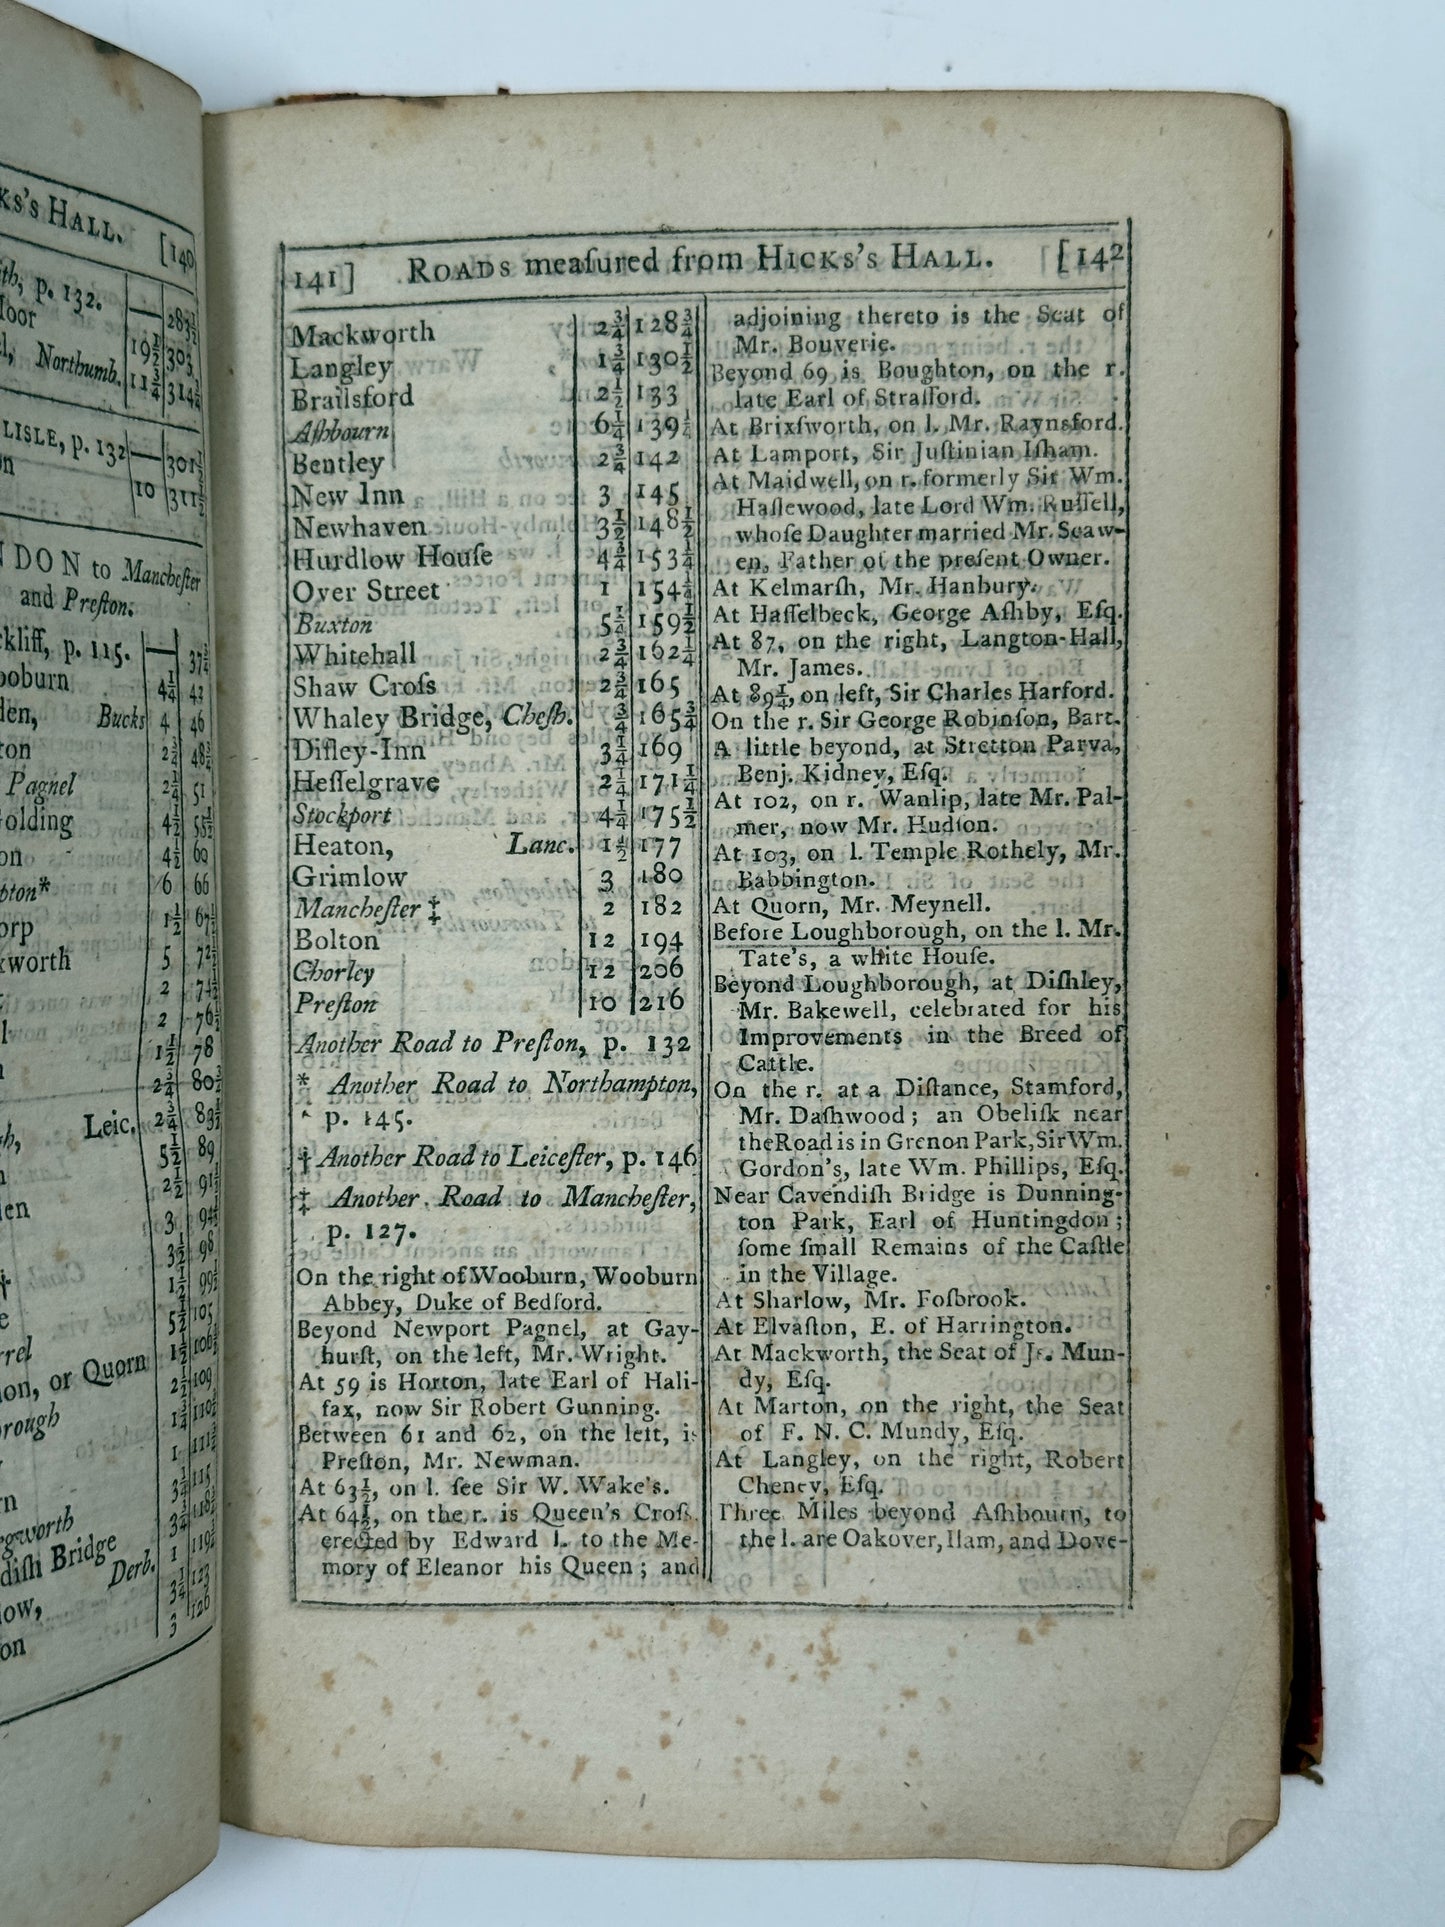 KS'S HALL. [140
ith, p. 132. — 283½
oor 19½ 303
l, Northumb. 11¾ 314¾
LISLE, p. 132 — 301½
on 10 311½
NDON to Mancheſter
and Preſton.
ckliff, p. 115. — 37¾
ooburn 4¼ 42
den, Bucks 4 46
ton 2¾ 48¾
Pagnel 2¼ 51
olding 4½ 55½
on 4½ 60
pton* 6 66
orp 1½ 67½
xworth 5 72½
2 74½
2 76½
l 1½ 78
2¾ 80¾
gh, Leic. 2¾ 83½
5½ 89
2½ 91½
den 3 94½
3½ 98
† 1½ 99½
e 5½ 105
rrel 1½ 106½
on, or Quorn 2½ 109
orough 1¾ 110¾
1 111¾
rn 3¼ 115
gworth 3¾ 118¾
diſh Bridge 1 119¾
low, Derb. 3¼ 123
on 3 126
141] ROADS meaſured from HICKS'S HALL. [142
Mackworth 2¾ 128¾
Langley 1¾ 130½
Brailsford 2½ 133
Aſhbourn 6¼ 139¼
Bentley 2¾ 142
New Inn 3 145
Newhaven 3½ 148½
Hurdlow Houſe 4¾ 153¼
Over Street 1 154¼
Buxton 5¼ 159½
Whitehall 2¾ 162¼
Shaw Croſs 2¾ 165
Whaley Bridge, Cheſh. ¾ 165¾
Diſley-Inn 3¼ 169
Heſſelgrave 2¼ 171¼
Stockport 4¼ 175½
Heaton, Lanc. 1½ 177
Grimlow 3 180
Mancheſter ‡ 2 182
Bolton 12 194
Chorley 12 206
Preſton 10 216
Another Road to Preſton, p. 132
* Another Road to Northampton,
p. 145.
† Another Road to Leiceſter, p. 146
‡ Another Road to Mancheſter,
p. 127.
On the right of Wooburn, Wooburn
Abbey, Duke of Bedford.
Beyond Newport Pagnel, at Gay-
hurſt, on the left, Mr. Wright.
At 59 is Horton, late Earl of Hali-
fax, now Sir Robert Gunning.
Between 61 and 62, on the left, is
Preſton, Mr. Newman.
At 63½, on l. ſee Sir W. Wake's.
At 64½, on the r. is Queen's Croſs,
erected by Edward I. to the Me-
mory of Eleanor his Queen; and
adjoining thereto is the Seat of
Mr. Bouverie.
Beyond 69 is Boughton, on the r.
late Earl of Strafford.
At Brixſworth, on l. Mr. Raynsford.
At Lamport, Sir Juſtinian Iſham.
At Maidwell, on r. formerly Sir Wm.
Haſlewood, late Lord Wm. Ruſſell,
whoſe Daughter married Mr. Scaw-
en, Father of the preſent Owner.
At Kelmarſh, Mr. Hanbury.
At Haſſelbeck, George Aſhby, Eſq.
At 87, on the right, Langton-Hall,
Mr. James.
At 89¼, on left, Sir Charles Harford.
On the r. Sir George Robinſon, Bart.
A little beyond, at Stretton Parva,
Benj. Kidney, Eſq.
At 102, on r. Wanlip, late Mr. Pal-
mer, now Mr. Hudſon.
At 103, on l. Temple Rothely, Mr.
Babbington.
At Quorn, Mr. Meynell.
Before Loughborough, on the l. Mr.
Tate's, a white Houſe.
Beyond Loughborough, at Diſhley,
Mr. Bakewell, celebrated for his
Improvements in the Breed of
Cattle.
On the r. at a Diſtance, Stamford,
Mr. Daſhwood; an Obeliſk near
the Road is in Grenon Park, Sir Wm.
Gordon's, late Wm. Phillips, Eſq.
Near Cavendiſh Bridge is Dunning-
ton Park, Earl of Huntingdon;
ſome ſmall Remains of the Caſtle
in the Village.
At Sharlow, Mr. Foſbrook.
At Elvaſton, E. of Harrington.
At Mackworth, the Seat of Jſ. Mun-
dy, Eſq.
At Marton, on the right, the Seat
of F. N. C. Mundy, Eſq.
At Langley, on the right, Robert
Cheney, Eſq.
Three Miles beyond Aſhbourn, to
the l. are Oakover, Ilam, and Dove-